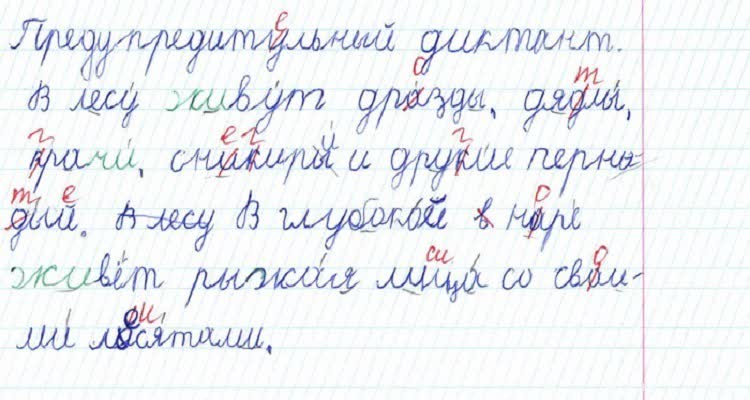 Предупредитульный диктант.
В лесу живут дразды, дядлы,
крачи, сникиры и друкие перна-
дый. В лесу В глубокой в наре
живёт рыжая лица со сваи-
ми лосятами.